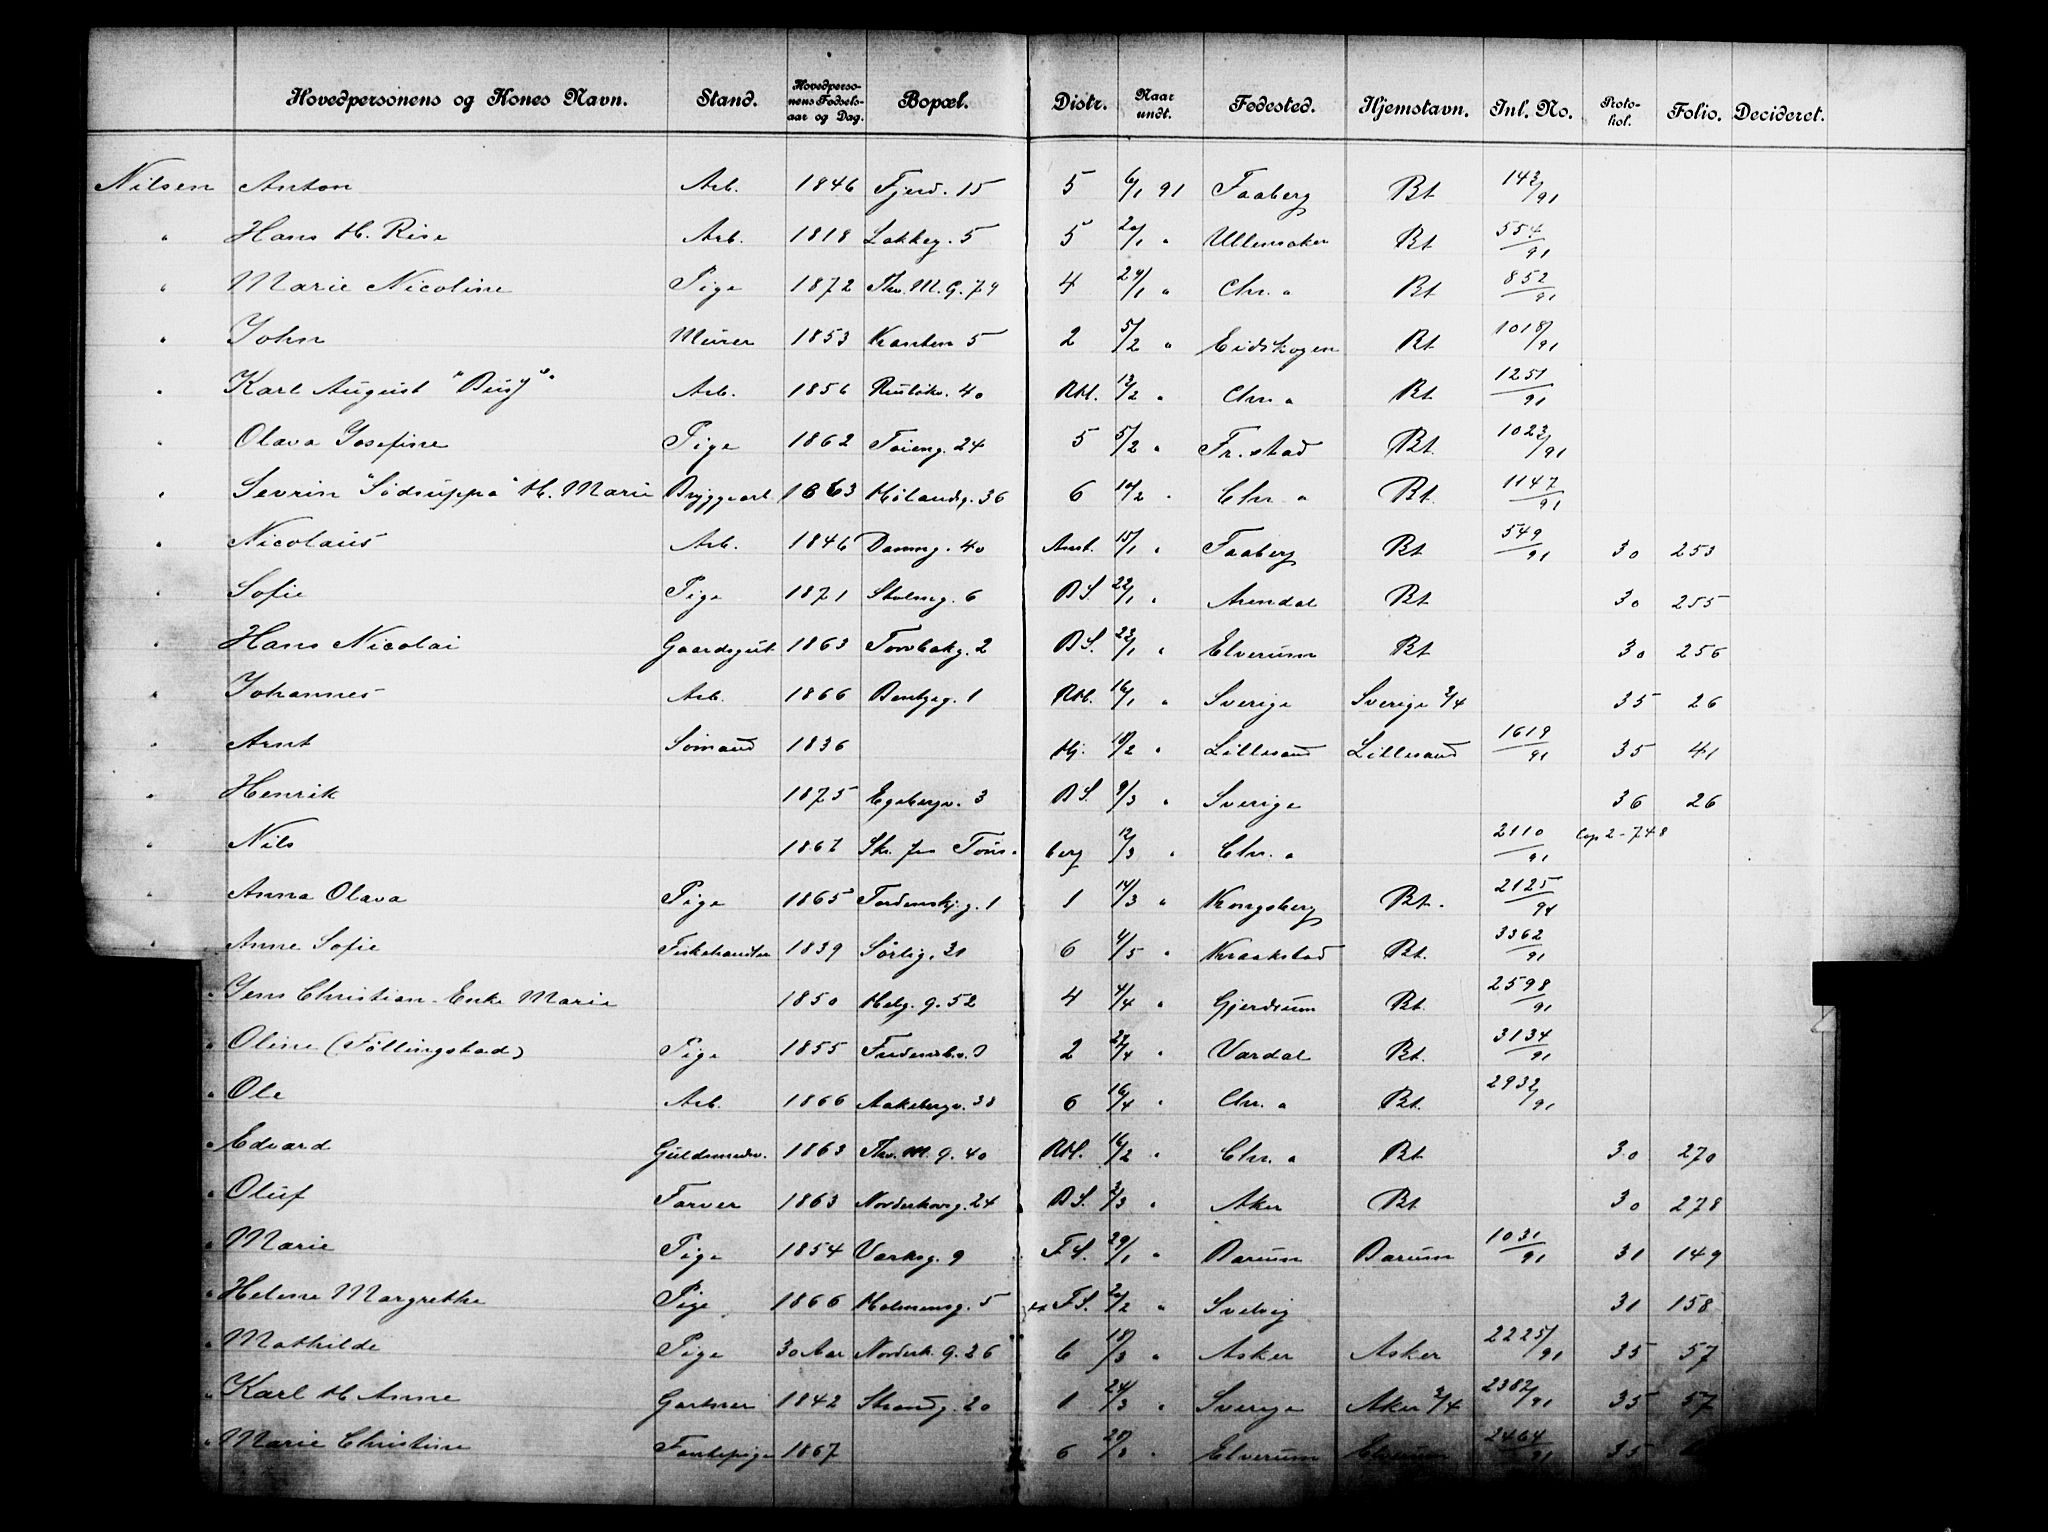 Hovedpersonens og Kones Navn. Stand. Hovedpersonens Fødselsaar og Dag. Bopæl. Distr. Naar undt. Fødested. Hjemstavn. Inl. No. Protokol. Folio. Decideret.
Nilsen Anton Arb. 1846 Fjerd. 15 5 6/1 91 Faaberg Bt 142/91
" Hans H. Rise Arb. 1818 Lakkeg. 5 5 20/1 " Ullensaker Bt 554/91
" Marie Nicoline Pige 1872 Thv. M. G. 74 4 24/1 " Chr. a Bt 852/91
" John Murer 1853 Kanten 5 2 5/2 " Eidskogen Bt 1018/91
" Karl August Arb. 1856 Ruseløkv. 40 RH. 12/2 " Chr. a Bt 1251/91
" Olava Josefine Pige 1862 Tøieng. 24 5 5/2 " Fr. stad Bt. 1023/91
" Sevrin "Sødsuppa" H. Marie Bryggearb 1863 Hølandg. 36 6 10/2 " Chr. a Bt. 1147/91
" Nicolaus Arb. 1846 Damng. 40 Arist. 15/1 " Faaberg Bt 549/91 30 253
" Sofie Pige 1871 Stolmg. 6 BS. 22/1 " Arendal Bt 30 255
" Hans Nicolai Gaardsgut 1863 Tombakg. 2 BS. 23/1 " Elverum Bt 30 256
" Johannes Arb. 1866 Bentseg. 1 RH. 16/1 " Sverige Sverige 3/4 35 26
" Arnt Sømand 1836 Hj. 18/2 " Lillesand Lillesand 1619/91 35 41
" Henrik 1875 Egebergv. 3 BS. 9/3 " Sverige 36 26
" Nils 1867 Sk. fra Tøns-berg 12/3 " Chr. a 2110/91 Cop 2-748
" Anna Olava Pige 1865 Tordenskj. g. 1 1 14/3 " Kongsberg Bt. 2125/91
" Anne Sofie Fiskehandler 1839 Sørlig. 31 6 4/5 " Kraakstad Bt. 3362/91
" Jens Christian - Enke Marie 1850 Helg. g. 52 4 4/4 " Gjerdrum Bt. 2598/91
" Oline (Føllingstad) Pige 1855 2 22/4 " Vardal Bt. 3134/91
" Ole Arb. 1866 Aakebergv. 38 6 16/4 " Chr. a Bt. 2932/91
" Edvard Guldsmedsv. 1863 Thv. M. g. 40 RH. 16/2 " Chr. a Bt 30 270
" Oluf Farver 1863 Norderhovg. 24 BS. 3/3 " Aker Bt 30 278
" Marie Pige 1854 Værksg. 9 F.S. 29/1 " Bærum Bærum 1031/91 31 149
" Helene Margrethe Pige 1866 Holmensg. 5 F.S. 20/2 " Svelvig 31 158
" Mathilde Pige 30 Aar Norderh. g. 26 6 18/3 " Asker Asker 2225/91 35 57
" Karl H. Anne Gartner 1842 Strandg. 20 1 24/3 " Sverige Aker 3/4 2382/91 35 57
" Marie Christine Fantepige 1867 6 20/3 " Elverum Elverum 2464/91 35